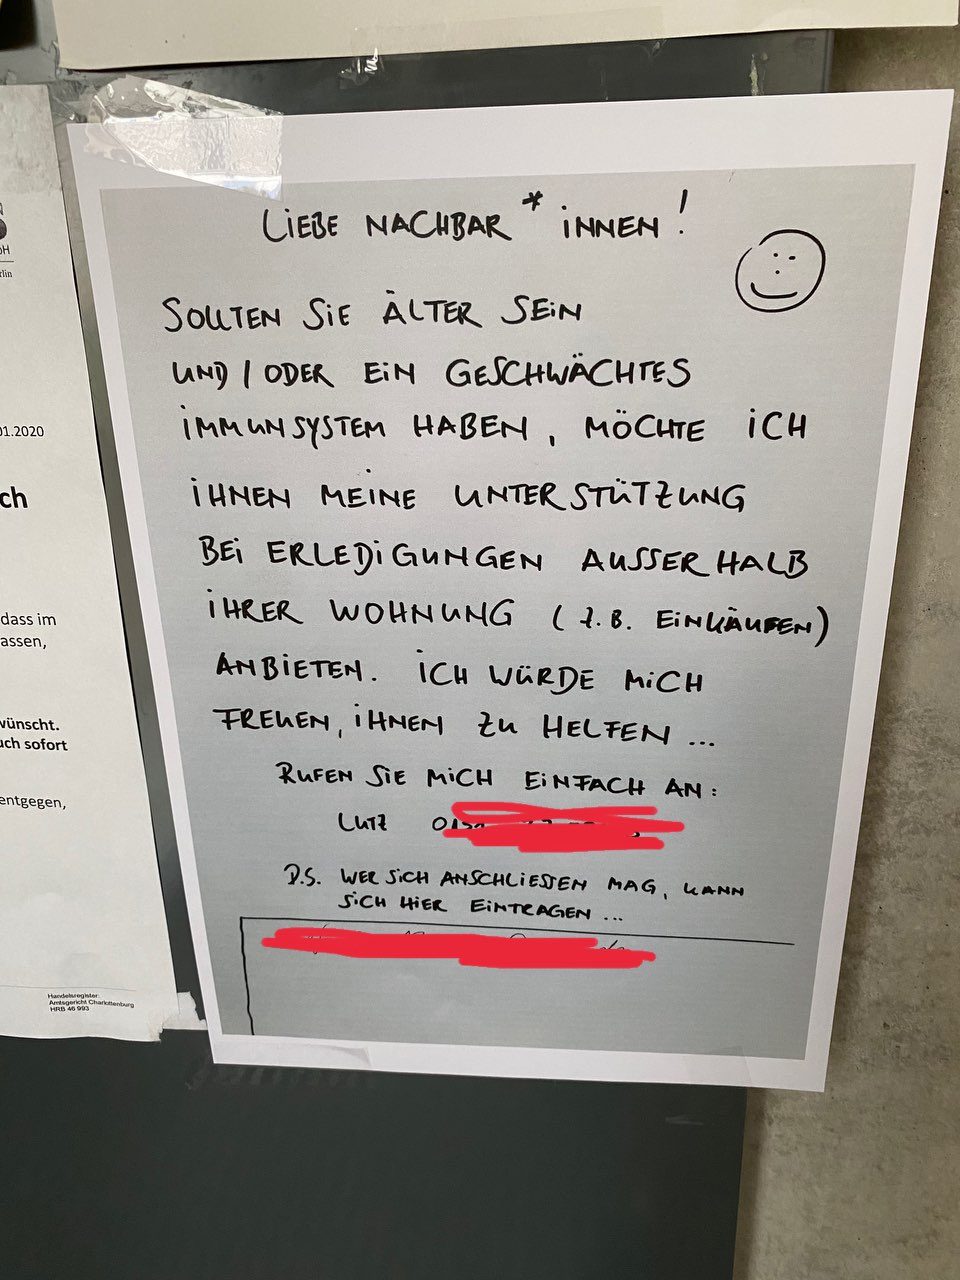 LIEBE NACHBAR*INNEN!
SOLLTEN SIE ÄLTER SEIN
UND/ODER EIN GESCHWÄCHTES
IMMUNSYSTEM HABEN, MÖCHTE ICH
IHNEN MEINE UNTERSTÜTZUNG
BEI ERLEDIGUNGEN AUSSERHALB
IHRER WOHNUNG (Z.B. EINKÄUFEN)
ANBIETEN. ICH WÜRDE MICH
FREUEN, IHNEN ZU HELFEN ...
RUFEN SIE MICH EINFACH AN:
LUTZ
P.S. WER SICH ANSCHLIESSEN MAG, KANN
SICH HIER EINTRAGEN ...
rlin
01.2020
ch
dass im
assen,
wünscht.
uch sofort
entgegen,
Handelsregister:
Amtsgericht Charlottenburg
HRB 46 993